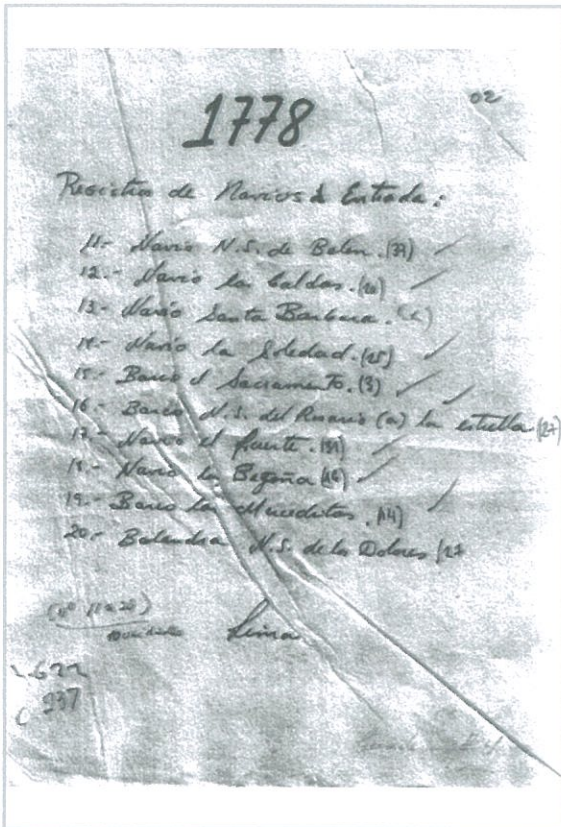 1778
02
Registro de Navios de Entrada:
11.- Navio N.S. de Belen. (39)
12.- Navio la Caldas. (20)
13.- Navio Santa Barbara.
14.- Navio la Soledad. (25)
15.- Barco el Sacramento. (3)
16.- Barco N.S. del Rosario (a) la estrella (27)
17.- Navio el fuerte. (39)
18.- Navio la Begoña (18)
19.- Barco las Merceditas. (14)
20.- Balandra N.S. de los Dolores (12
(nº 11 a 20)
Lima
622
C 937